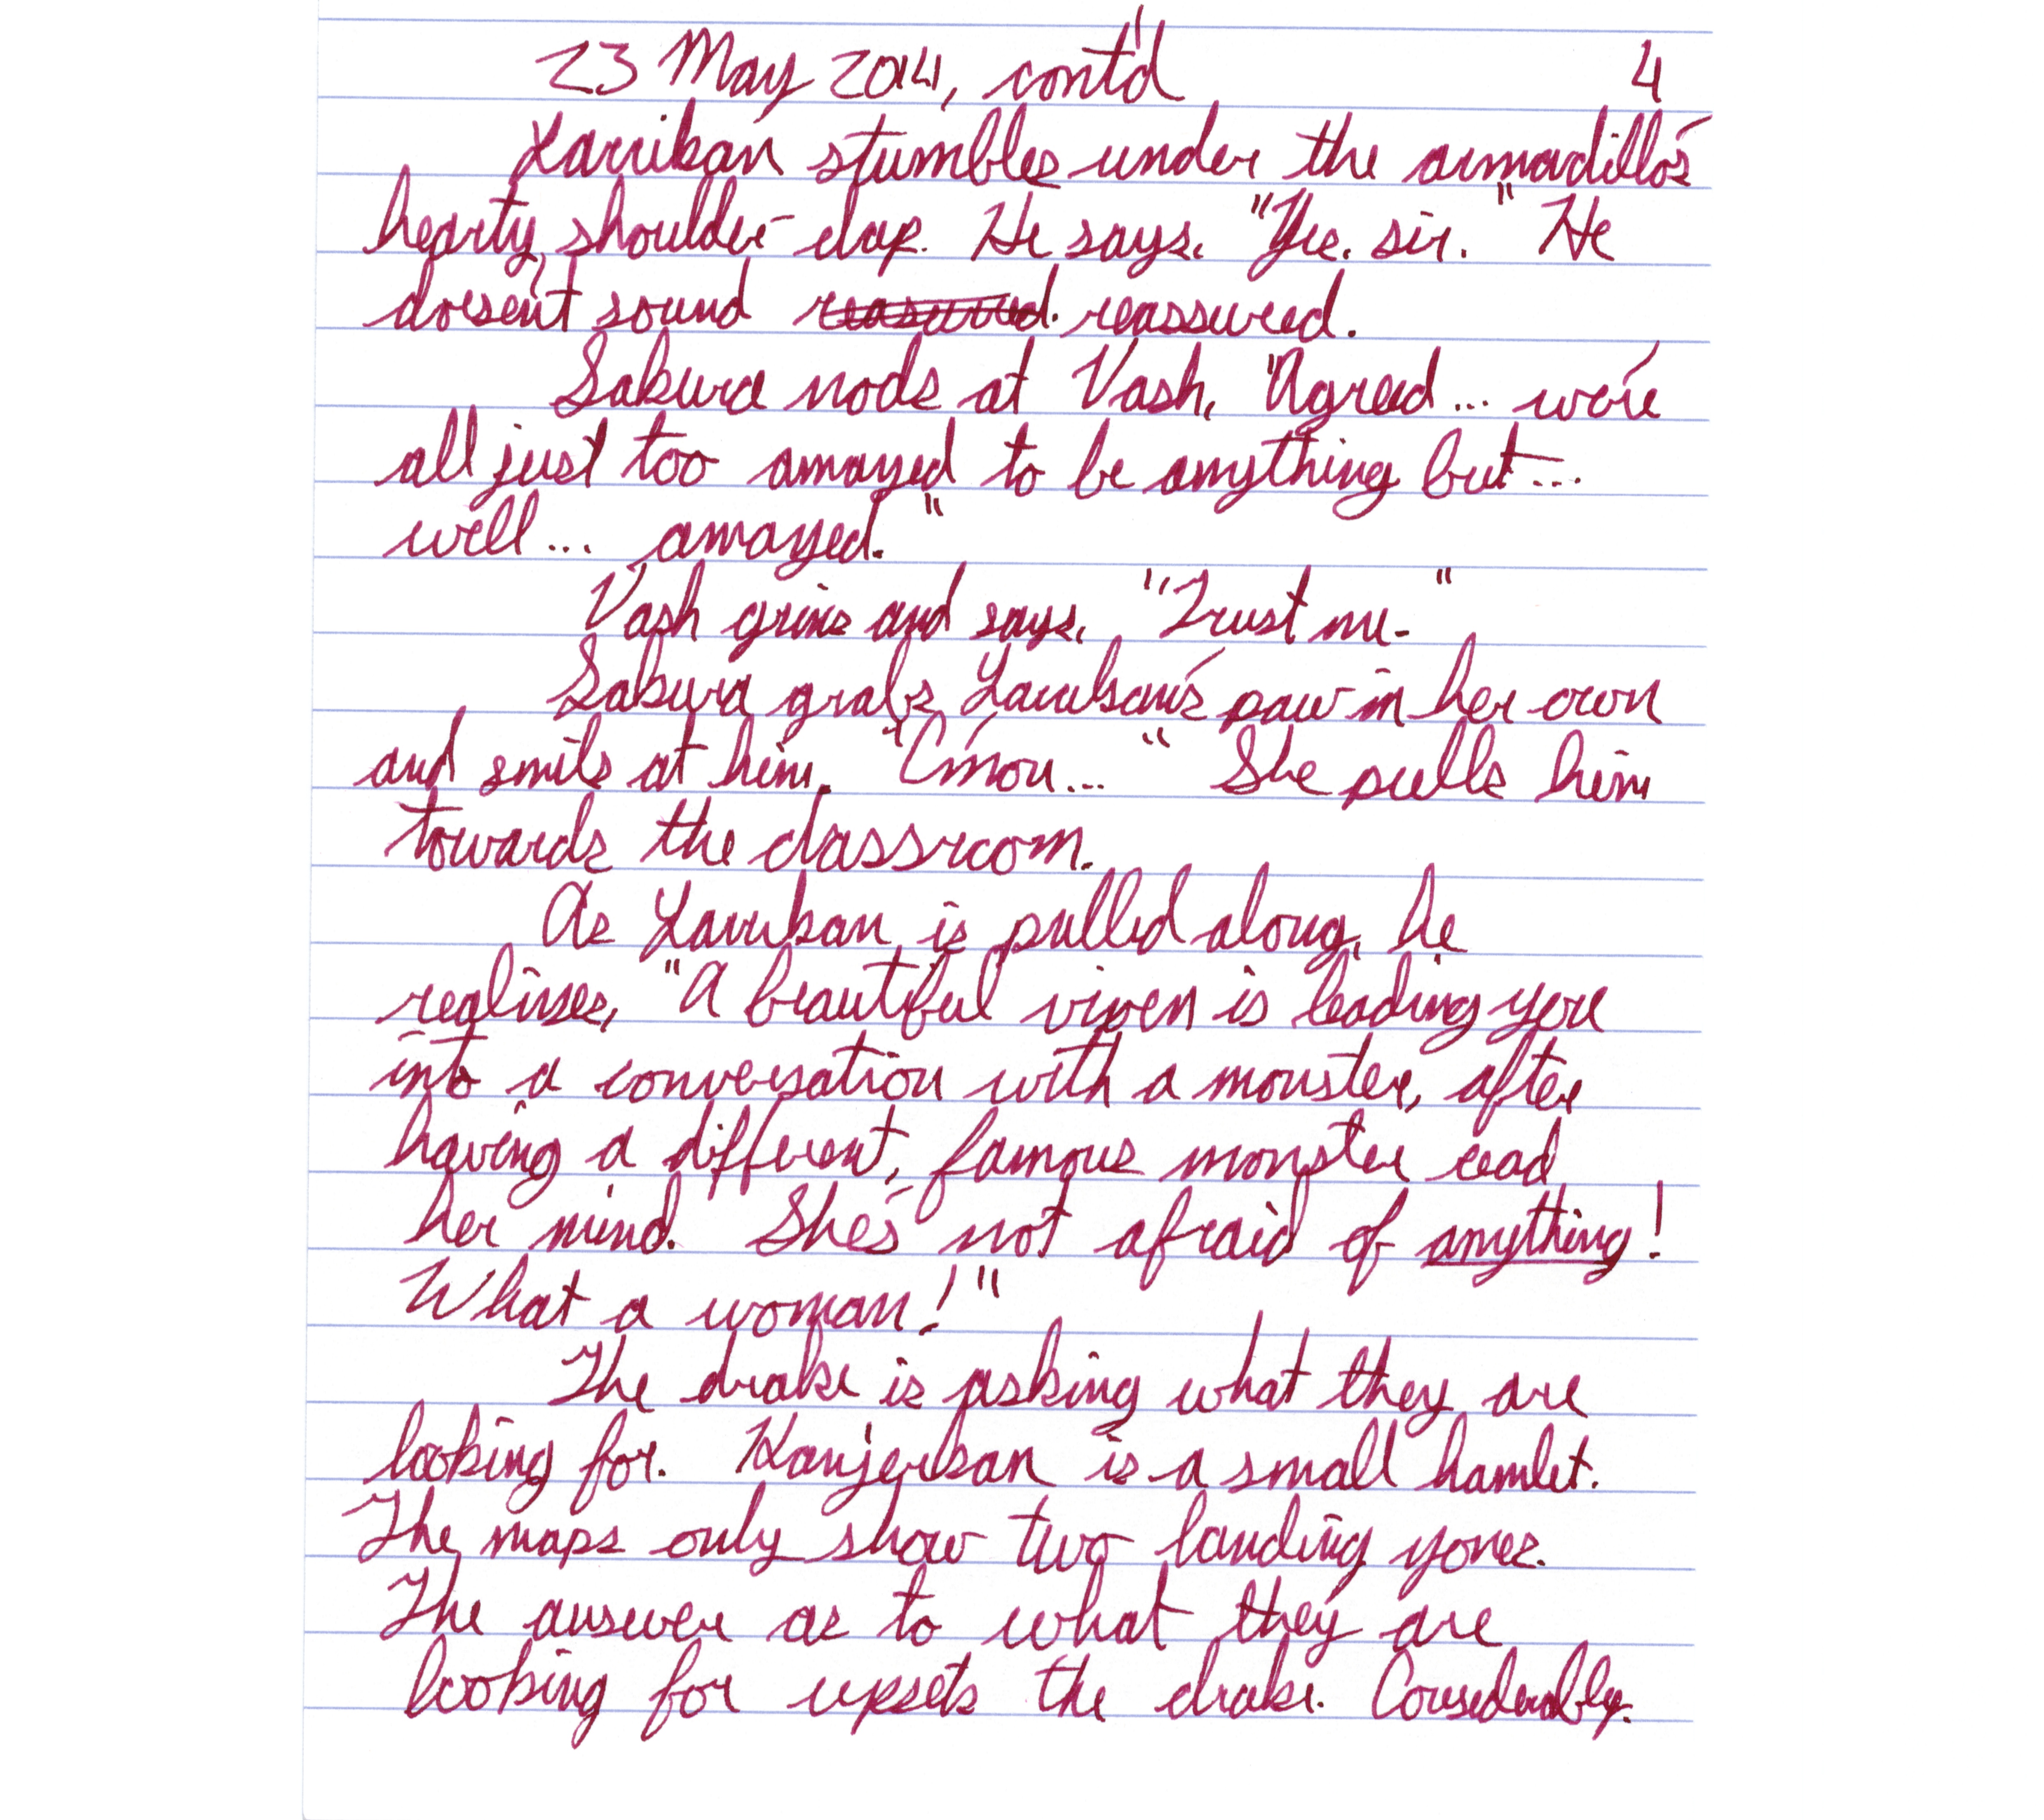 23 May 2014, cont'd 4
Xarriban stumbles under the armadillo's
hearty shoulder-clap. He says, "Yes, sir." He
doesn't sound reasured. reassured.
Sakura nods at Vash, "Agreed... we're
all just too amazed to be anything but...
well... amazed."
Vash grins and says, "Trust me."
Sakura grabs Xarriban's paw in her own
and smiles at him. "C'mon..." She pulls him
towards the classroom.
As Xarriban is pulled along, he
realizes, "A beautiful vixen is leading you
into a conversation with a monster, after
having a different, famous monster read
her mind. She's not afraid of anything!
What a woman!"
The drake is asking what they are
looking for. Kanjerban is a small hamlet.
The maps only show two landing zones.
The answer as to what they are
looking for upsets the drake. Considerably.